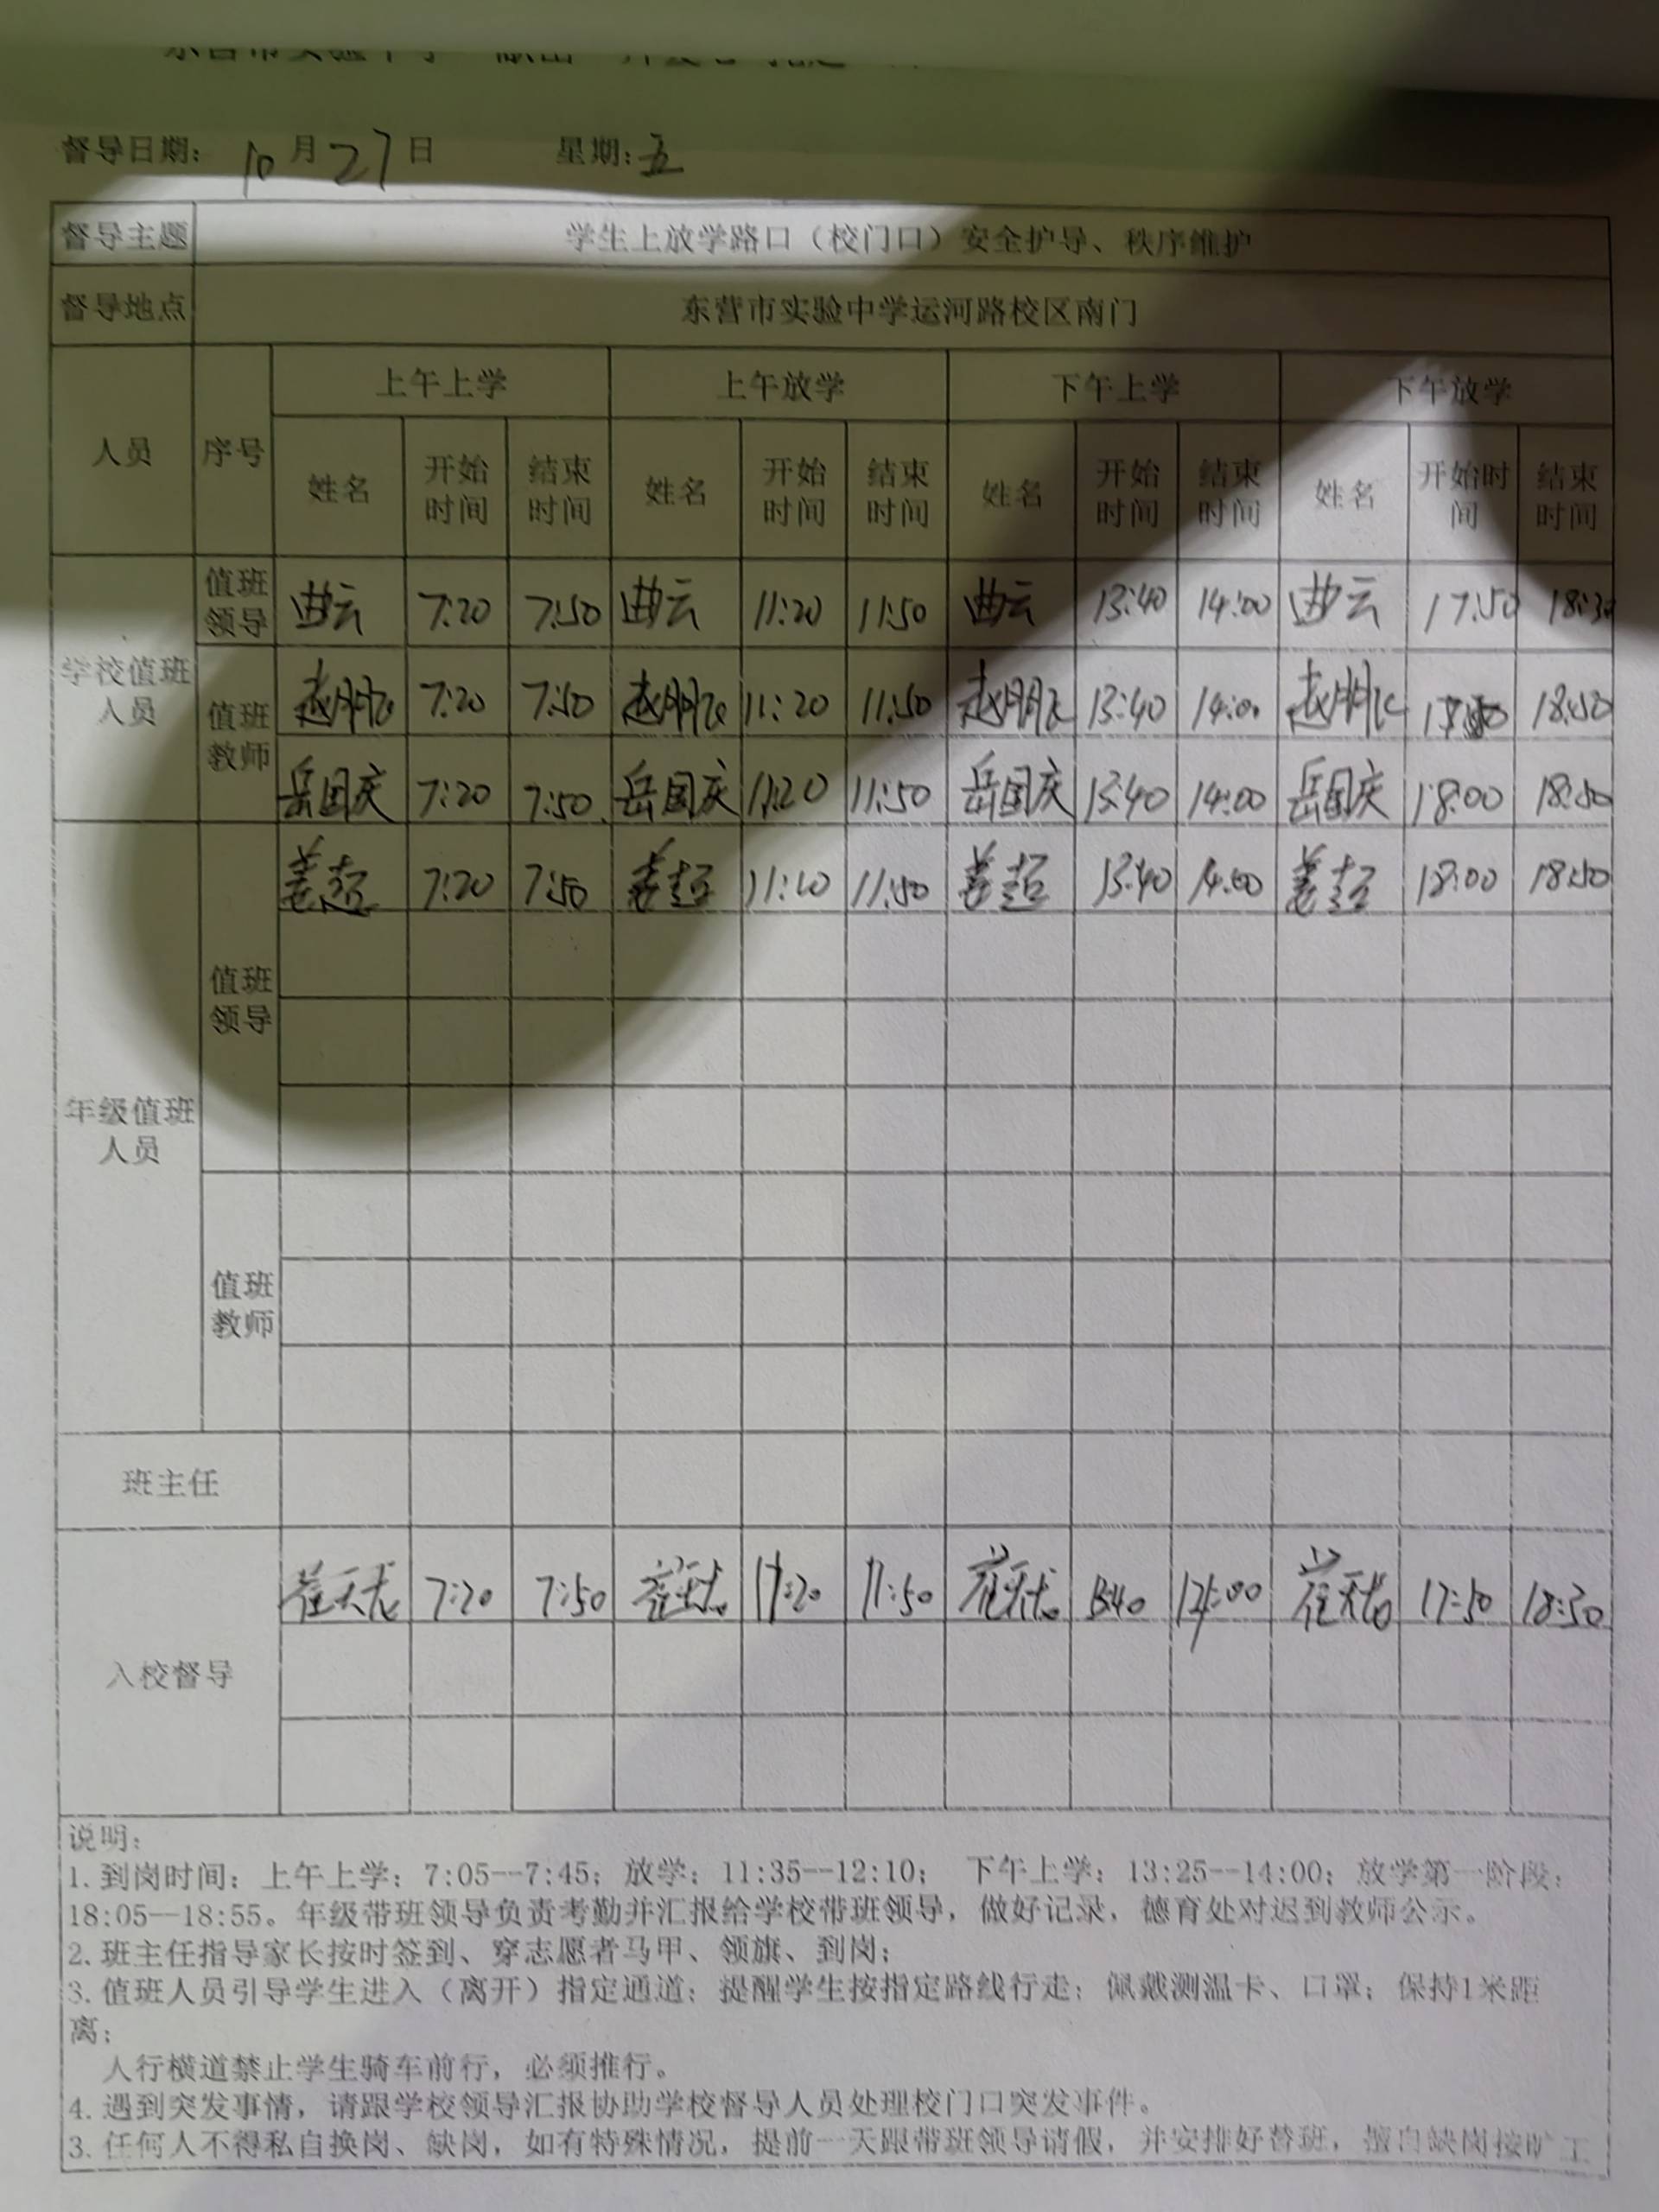 督导日期： 10 月 27 日 星期：五
督导主题 学生上放学路口（校门口）安全护导、秩序维护
督导地点 东营市实验中学运河路校区南门
人员 序号 上午上学 上午放学 下午上学 下午放学
姓名 开始时间 结束时间 姓名 开始时间 结束时间 姓名 开始时间 结束时间 姓名 开始时间 结束时间
学校值班人员 值班领导 曲云 7:20 7:50 曲云 11:20 11:50 曲云 13:40 14:00 曲云 17:50 18:30
值班教师 7:20 7:50 11:20 11:50 13:40 14:00 18:50
岳国庆 7:20 7:50 岳国庆 11:20 11:50 岳国庆 13:40 14:00 岳国庆 18:00 18:50
年级值班人员 值班领导 姜超 7:20 7:50 姜超 11:20 11:50 姜超 13:40 14:00 姜超 18:00 18:50
值班教师
班主任
入校督导 7:20 7:50 11:20 11:50 13:40 14:00 17:50 18:30
说明：
1. 到岗时间：上午上学：7:05--7:45；放学：11:35--12:10； 下午上学：13:25--14:00；放学第一阶段：
18:05--18:55。年级带班领导负责考勤并汇报给学校带班领导，做好记录，德育处对迟到教师公示。
2. 班主任指导家长按时签到、穿志愿者马甲、领旗、到岗；
3. 值班人员引导学生进入（离开）指定通道；提醒学生按指定路线行走；佩戴测温卡、口罩；保持1米距
离；
人行横道禁止学生骑车前行，必须推行。
4. 遇到突发事情，请跟学校领导汇报协助学校督导人员处理校门口突发事件。
3. 任何人不得私自换岗、缺岗，如有特殊情况，提前一天跟带班领导请假，并安排好替班，擅自缺岗按旷工